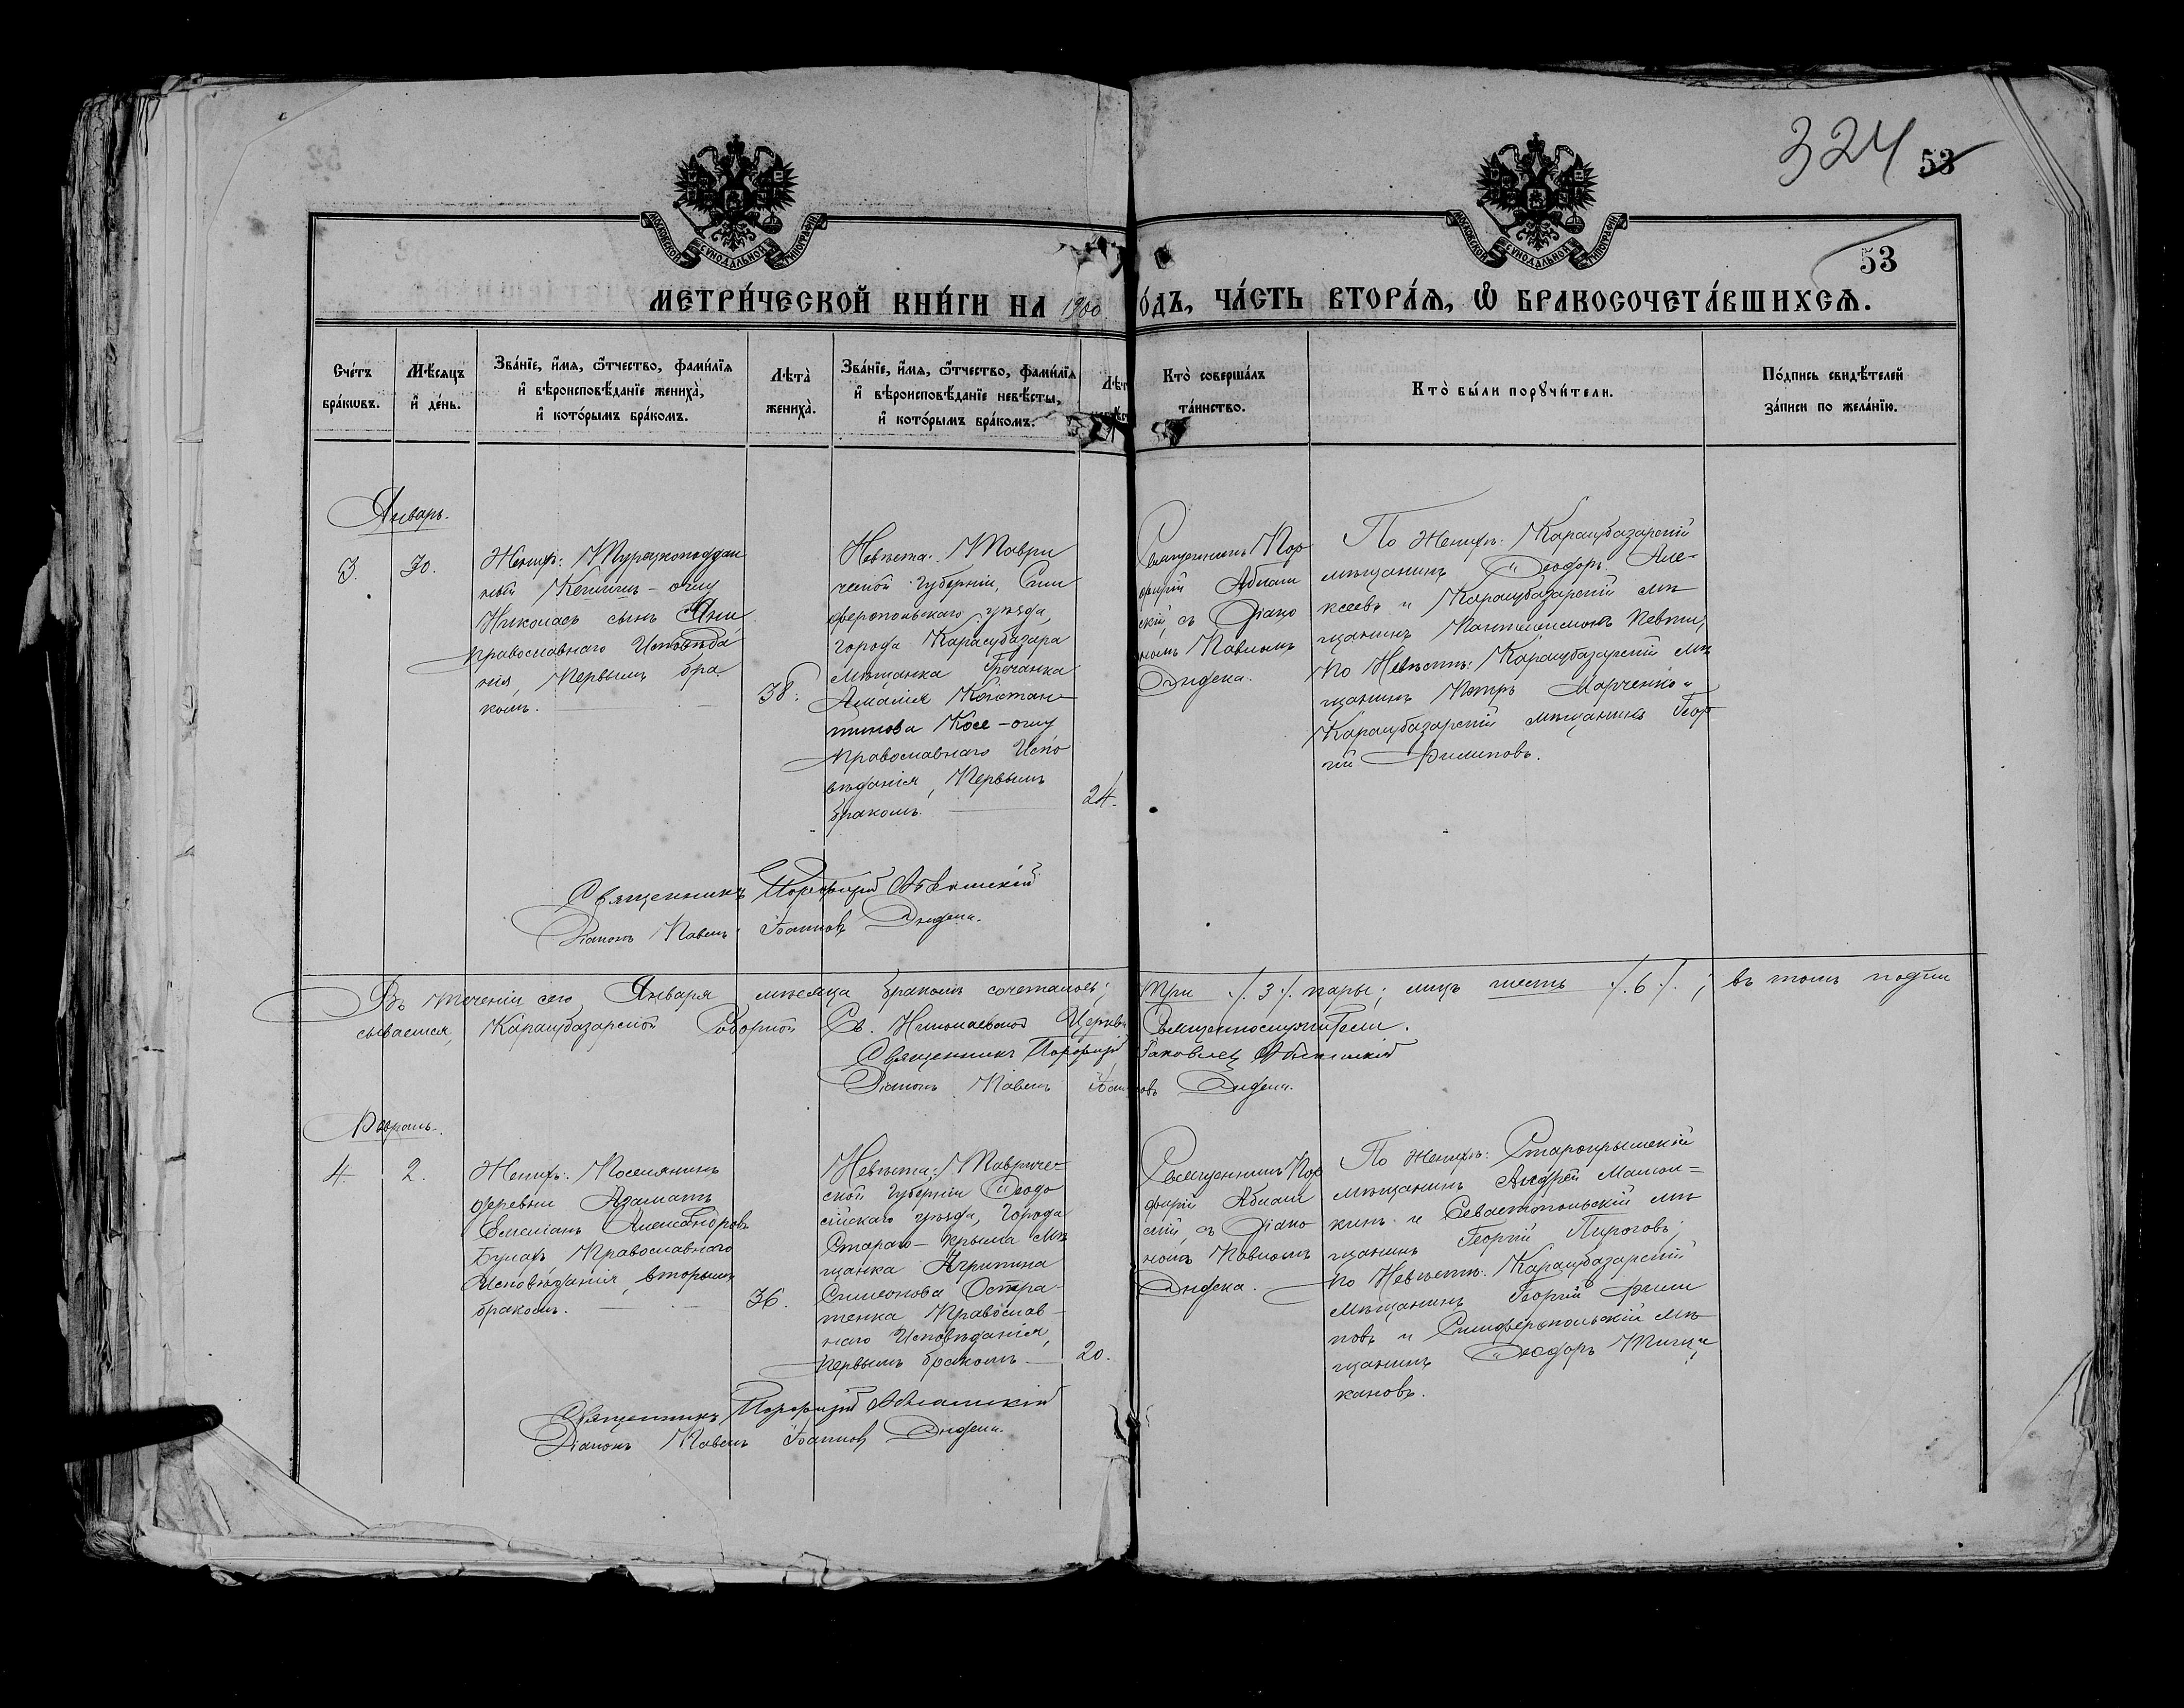 324 53
МОСКОВСКОЙ СУНОДАЛЬНОЙ ТИПОГРАФІИ
МОСКОВСКОЙ СУНОДАЛЬНОЙ ТИПОГРАФІИ
53
МЕТРИ́ЧЕСКОЙ КНИ́ГИ НА 1900 О́ДЪ, ЧА́СТЬ ВТОРА́Я, Ѿ БРАКОСОЧЕТА́ВШИХСЯ.
Сче́тъ
бра́кѡвъ.
Мѣ́сяцъ
и҆ де́нь.
Зва́нїе, и҆́мя, ѻ҆́тчество, фами́лїя
и҆ вѣроисповѣ́данїе жениха̀,
и҆ кото́рымъ бра́комъ.
Лѣта̀
жениха̀.
Зва́нїе, и҆́мя, ѻ҆́тчество, фами́лїя
и҆ вѣроисповѣ́данїе невѣ́сты,
и҆ кото́рымъ бра́комъ.
Лѣт
Кто̀ соверша́лъ
та́инство.
Кто̀ бы́ли порꙋчи́тели.
По́дпись свидѣ́телей
за́писи по жела́нїю.
Январь.
3.
30.
Женихъ: Турецкоподдан
ный
Николаевъ сынъ
православнаго Исповѣда
нія, Первымъ бра
комъ.
38.
Невѣста: Таври
ческой Губерніи, Сим
феропольскаго уѣзда,
города Карасубазара
мѣщанка Гречанка
Константи
нова Косе-оглу
Православнаго Испо
вѣданія, Первымъ
бракомъ.
24.
Священникъ Пор
фирій
скій, съ Діако
номъ Павломъ
Дидека.
По Женихѣ: Карасубазарскій
мѣщанинъ Ѳеодоръ Але-
ксеевъ и Карасубазарскій мѣ
щанинъ Пантелеимонъ
По Невѣстѣ: Карасубазарскій мѣ
щанинъ Петръ Марченко и
Карасубазарскій мѣщанинъ Геор
гій Филиповъ.
Священникъ Порфирій
Діаконъ Павелъ Іоанновъ Дидека.
Въ теченіи сего Января мѣсяца бракомъ сочеталось: Три ./.3./. пары; лицъ шесть ./.6./.; въ томъ подпи
сываемся, Карасубазарской Соборной Св. Николаевской Церкви Священнослужители.
Священникъ Порфирій Іаковлевъ
Діаконъ Павелъ Іоанновъ Дидека.
Февраль.
4.
2.
Женихъ: Поселянинъ
деревни Азаматъ
Емеліанъ Александровъ
Православнаго
Исповѣданія, вторымъ
бракомъ.
36.
Невѣста: Тавриче-
ской Губерніи Ѳеодо
сійскаго уѣзда, Города
Стараго-Крыма мѣ
щанка Агрипина
Симеонова Остра-
тенка Православ-
наго Исповѣданія,
первымъ бракомъ.
20.
Священникъ Пор
фирій
скій, съ Діако
номъ Павломъ
Дидека.
По Женихѣ: Старокрымскій
мѣщанинъ Андрей
кинъ и Севастопольскій мѣ
щанинъ Георгій Пироговъ;
по Невѣстѣ: Карасубазарскій
мѣщанинъ Георгій Фили
повъ и Симферопольскій мѣ
щанинъ Ѳеодоръ
кановъ.
Священникъ Порфирій
Діаконъ Павелъ Іоанновъ Дидека.